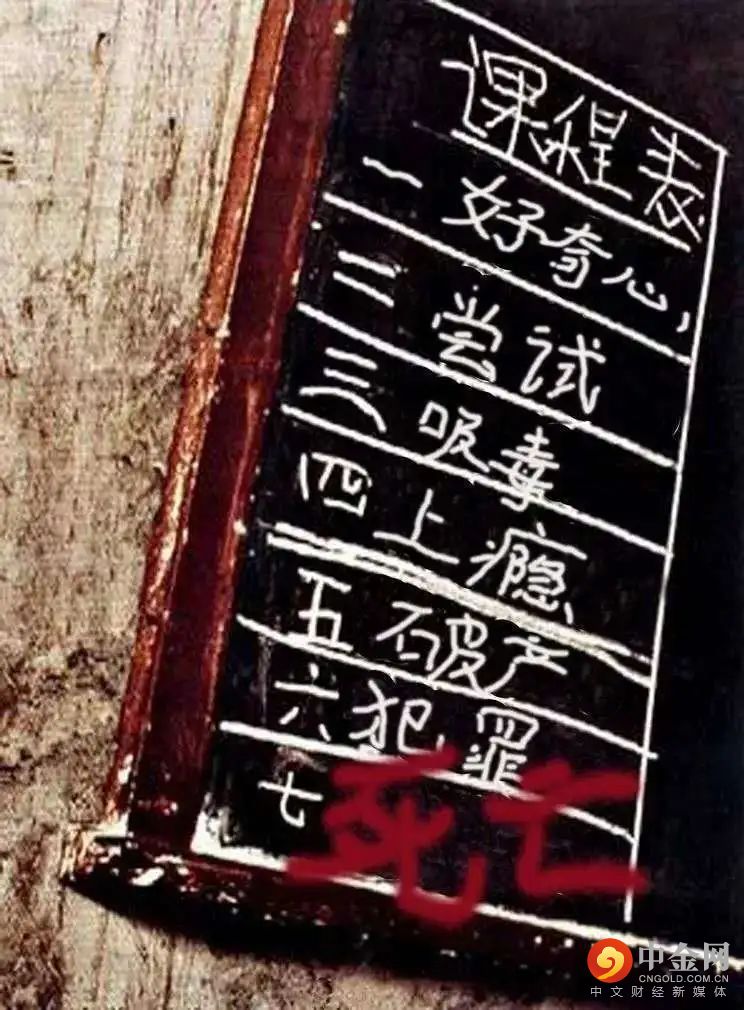 课程表
一 好奇心,
二 尝试
三 吸毒
四 上瘾
五 破产
六 犯罪
七 死亡
中金网
CNGOLD.COM.CN
中文财经新媒体